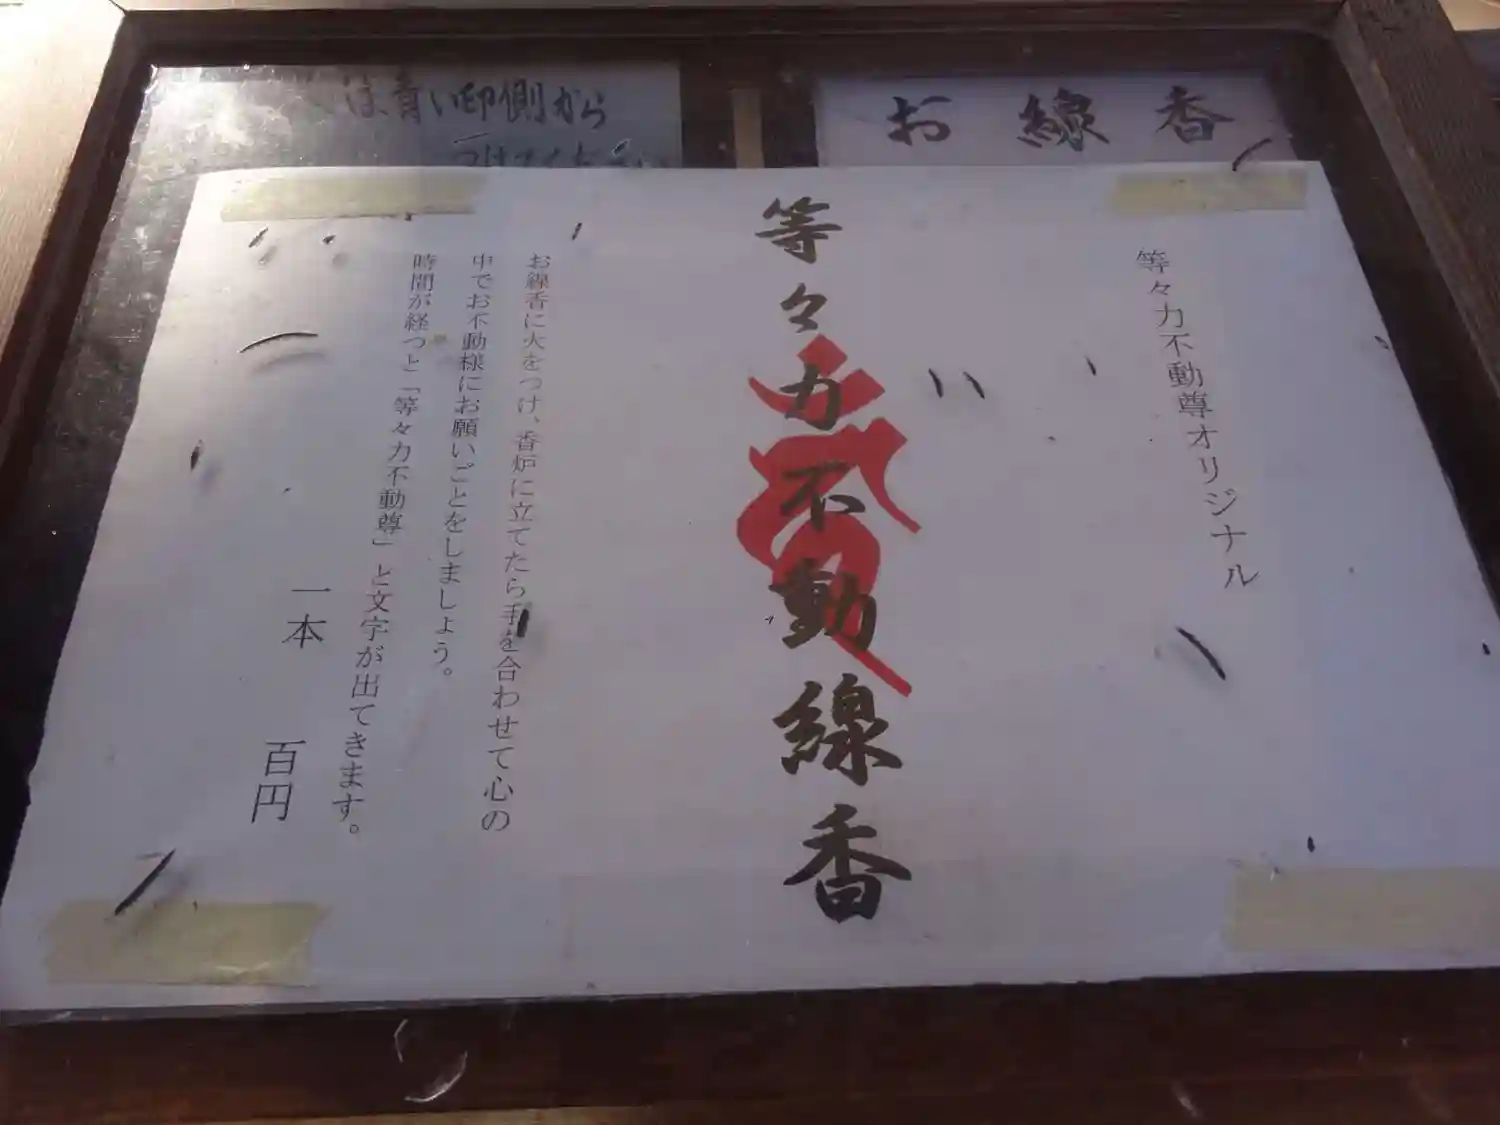 は青い印側から
つけてください
お線香
等々力不動尊オリジナル
等々力不動線香
お線香に火をつけ、香炉に立てたら手を合わせて心の
中でお不動様にお願いごとをしましょう。
時間が経つと「等々力不動尊」と文字が出てきます。
一本 百円